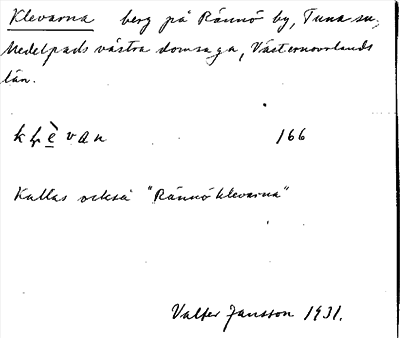 Klevarna berg på Rännö by, Tuna sn,
Medelpads västra domsaga, Västernorrlands
län.
166
Kallas också "Rännöklevarna"
Valter Jansson 1931.